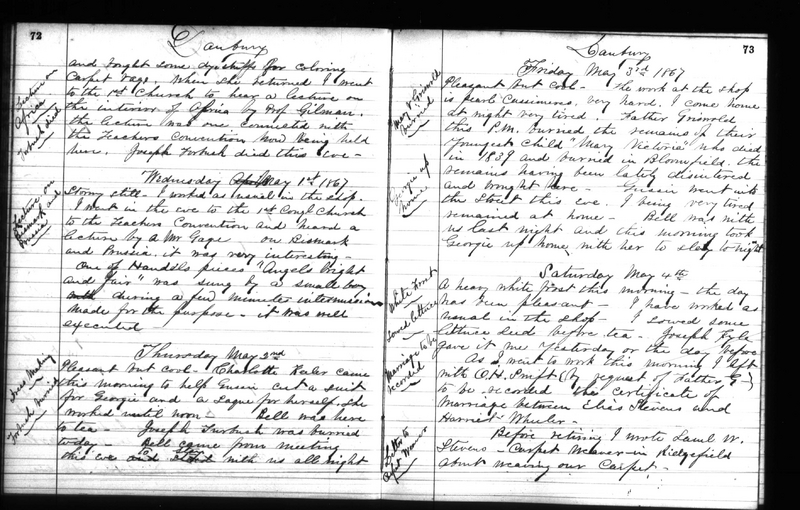 72
Danbury
and bought some dyestuffs for coloring
Carpet rags. When she returned I went
to the 1st Church to hear a lecture on
the interior of Africa by Prof Gilman.
the lecture was one connected with
the Teachers Convention now being held
here. Joseph Forbush died this eve -
Lecture on
Africa
Forbush died
Wednesday May 1st 1867
Stormy still - I worked as usual in the shop.
I went in the eve to the 1st Congl Church
to the Teachers Convention and heard a
lecture by a Mr Gage on Bismark
and Prussia, it was very interesting -
One of Handels pieces "Angels bright
and fair" was sung by a small boy,
during a few minutes intermission
made for the purpose - it was well
executed
Lecture on
Bismark and
Prussia
Thursday May 2nd
Pleasant but cool - Charlotte Kaler came
this morning to help Gussie cut a suit
for Georgie and a Saque for herself. She
worked until noon - Bell was here
to tea - Joseph Furbush was burried
today - Bell came from meeting
this eve and with us all night
Dress Making
Forbush burried
73
Danbury
Friday May 3rd 1867
Pleasant but cool - the work at the shop
is pearl Cassimeres, very hard. I come home
at night very tired. Father Griswold
this P.M. burried the remains of their
Youngest Child "Mary Victoria" who died
in 1839 and burried in Bloomfield. the
remains having been lately disintered
and brought here - Gussie went into
the Street this eve. I being very tired
remained at home - Bell was with
us last night and this morning took
Georgie up home with her to stay to night
Mary V. Griswold
burried
Georgie up
home
Saturday May 4th
A heavy white frost this morning - the day
has been pleasant - I have worked as
usual in the shop - I sowed some
lettuce seed before tea - Joseph Kyle
gave it me Yesterday or the day before
As I went to work this morning I left
with O.H. Swift (by request of Father G -)
to be recorded the certificate of
Marriage between Elias Stevens and
Harriet Wheeler -
Before retiring I wrote Saml W.
Stevens - Carpet Weaver in Ridgefield
about weaving our Carpet. -
White Frost
Sowed lettuce
Marriage to be
recorded
Letter to
Cpt Weaver